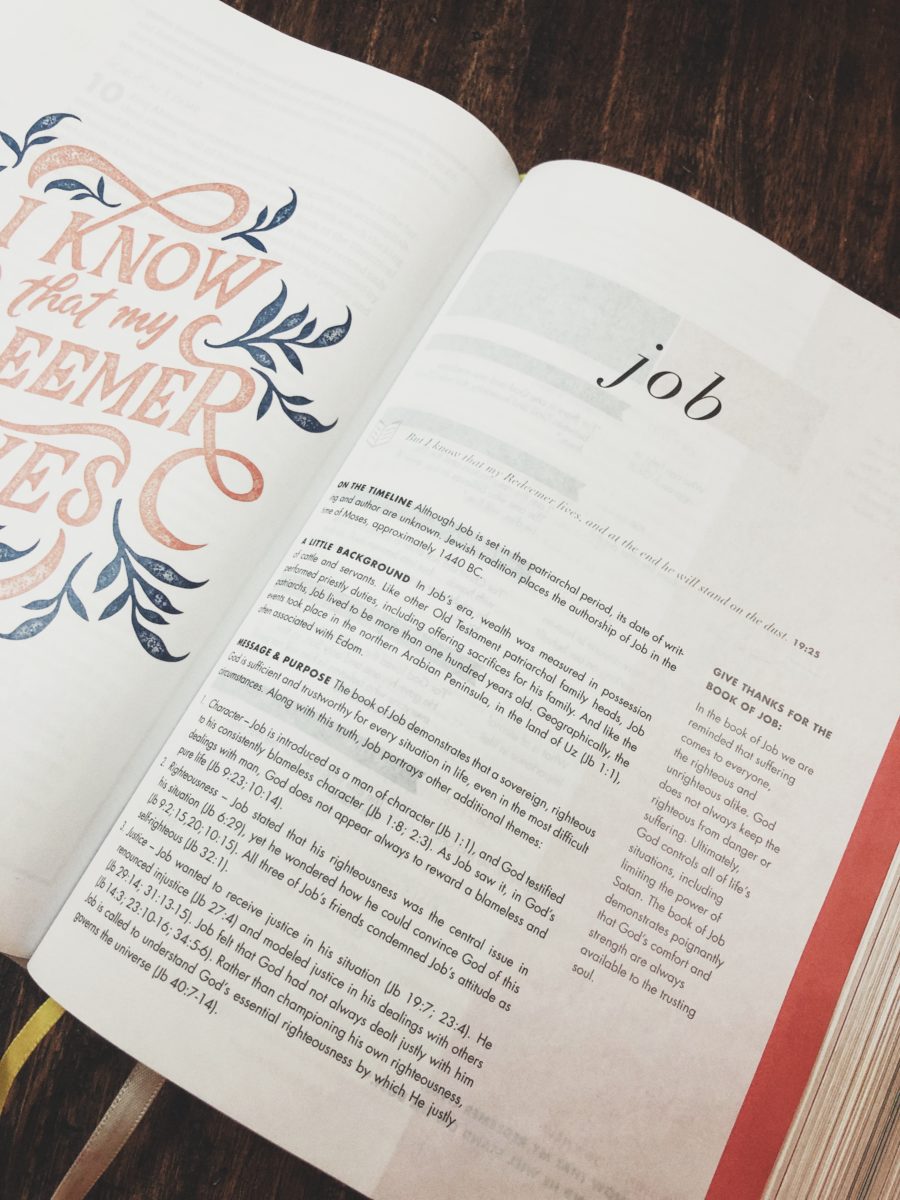 I KNOW
that my
EEMER
VES
job
But I know that my Redeemer lives, and at the end he will stand on the dust. 19:25
ON THE TIMELINE Although Job is set in the patriarchal period, its date of writ-
ing and author are unknown. Jewish tradition places the authorship of Job in the
time of Moses, approximately 1440 BC.
A LITTLE BACKGROUND In Job's era, wealth was measured in possession
of cattle and servants. Like other Old Testament patriarchal family heads, Job
performed priestly duties, including offering sacrifices for his family. And like the
patriarchs, Job lived to be more than one hundred years old. Geographically, the
events took place in the northern Arabian Peninsula, in the land of Uz (Jb 1:1),
often associated with Edom.
MESSAGE & PURPOSE The book of Job demonstrates that a sovereign, righteous
God is sufficient and trustworthy for every situation in life, even in the most difficult
circumstances. Along with this truth, Job portrays other additional themes:
1. Character – Job is introduced as a man of character (Jb 1:1), and God testified
to his consistently blameless character (Jb 1:8; 2:3). As Job saw it, in God's
dealings with man, God does not appear always to reward a blameless and
pure life (Jb 9:23; 10:14).
2. Righteousness – Job stated that his righteousness was the central issue in
his situation (Jb 6:29), yet he wondered how he could convince God of this
(Jb 9:2,15,20; 10:15). All three of Job's friends condemned Job's attitude as
self-righteous (Jb 32:1).
3. Justice – Job wanted to receive justice in his situation (Jb 19:7; 23:4). He
renounced injustice (Jb 27:4) and modeled justice in his dealings with others
(Jb 29:14; 31:13-15). Job felt that God had not always dealt justly with him
(Jb 14:3; 23:10-16; 34:5-6). Rather than championing his own righteousness,
Job is called to understand God's essential righteousness by which He justly
governs the universe (Jb 40:7-14).
GIVE THANKS FOR THE
BOOK OF JOB:
In the book of Job we are
reminded that suffering
comes to everyone,
the righteous and
unrighteous alike. God
does not always keep the
righteous from danger or
suffering. Ultimately,
God controls all of life's
situations, including
limiting the power of
Satan. The book of Job
demonstrates poignantly
that God's comfort and
strength are always
available to the trusting
soul.